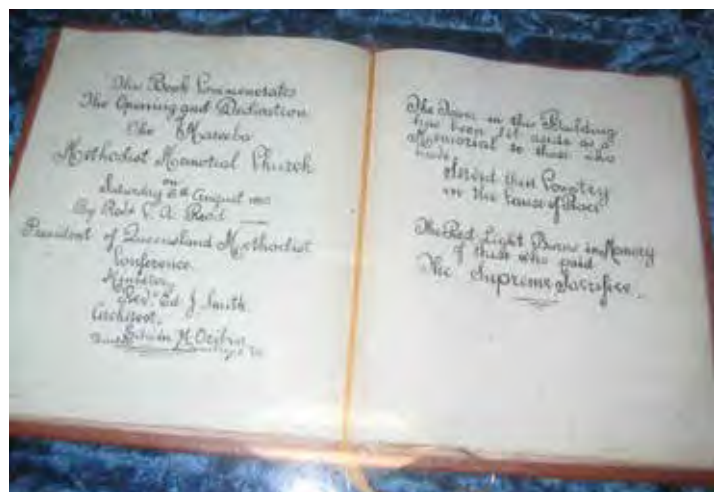 This Book Commemorates
The Opening and Dedication
The Mareeba
Methodist Memorial Church
on
Saturday 6th August 1960
By Rev. A. Read
President of Queensland Methodist
Conference.
Minister,
Rev. Ed. J. Smith
Architect,
Edwin H. Oribin
The Tower in this Building
has been set aside as a
Memorial to those who
have
Served their Country
in the Cause of Peace
The Red Light Burns in Memory
of those who paid
The Supreme Sacrifice.